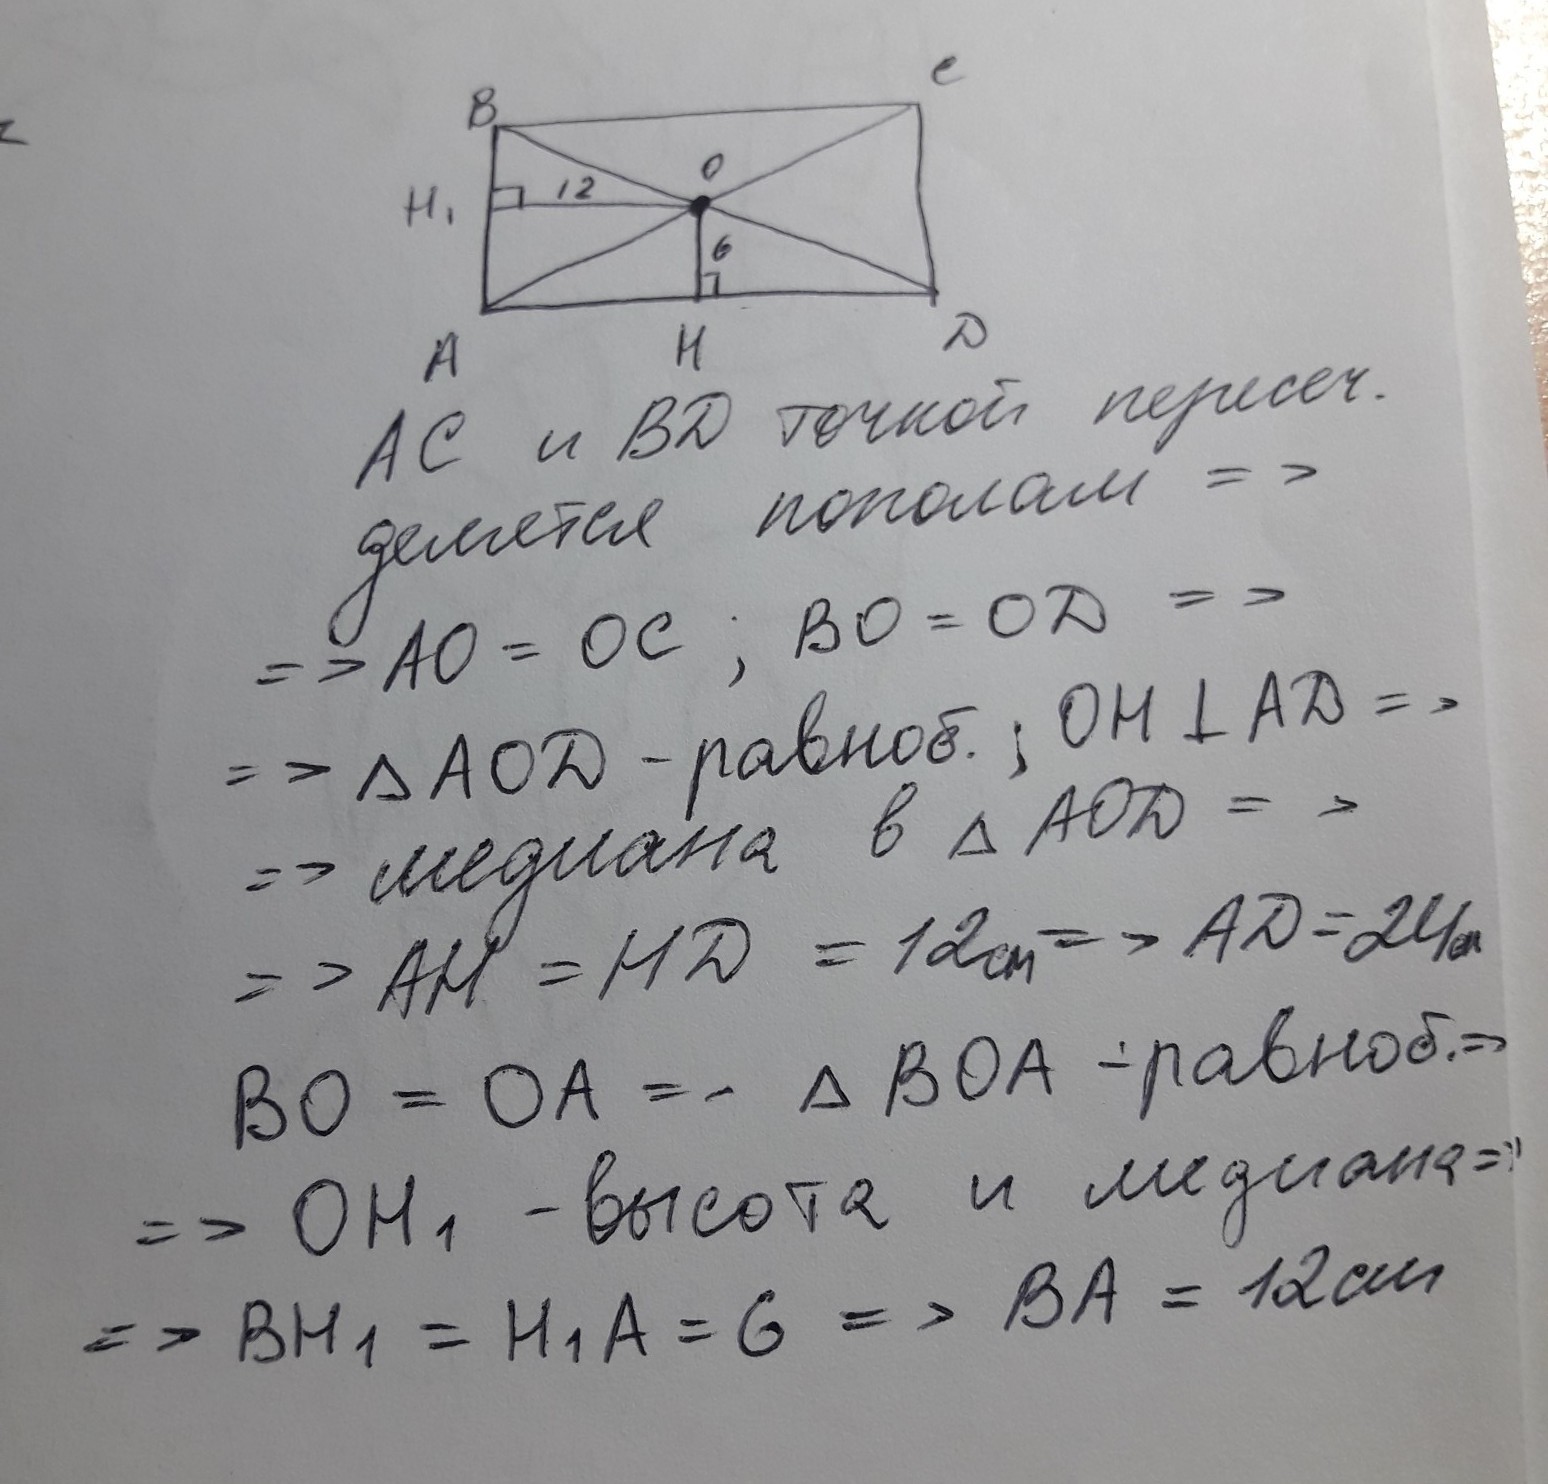 B
C
H₁
12
O
6
A
H
D
AC и BD точкой пересеч.
делятся пополам =>
=> AO = OC ; BO = OD =>
=> △ AOD - равноб. ; OH ⊥ AD =>
=> медиана в △ AOD =>
=> AH = HD = 12см => AD = 24см
BO = OA =- △ BOA - равноб. =>
=> OH₁ - высота и медиана =>
=> BH₁ = H₁A = 6 => BA = 12см